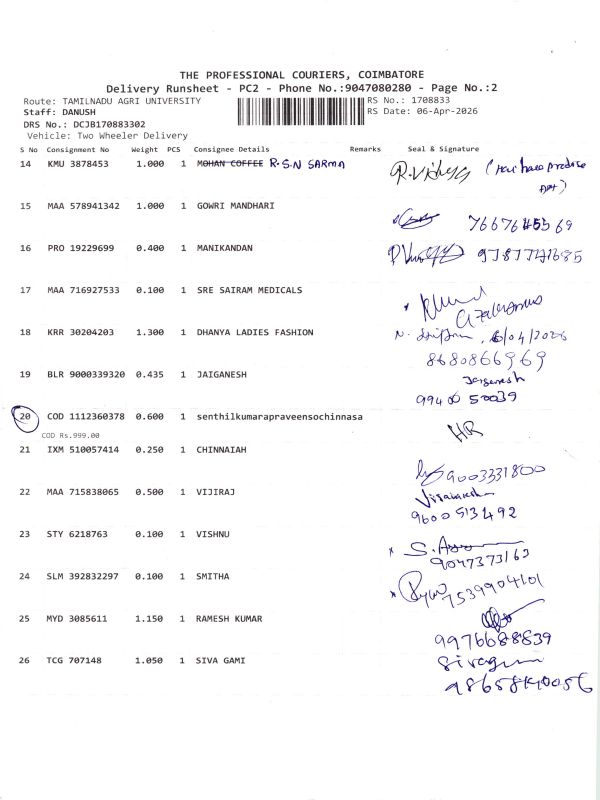 THE PROFESSIONAL COURIERS, COIMBATORE
Delivery Runsheet - PC2 - Phone No.:9047080280 - Page No.:2
Route: TAMILNADU AGRI UNIVERSITY RS No.: 1708833
Staff: DANUSH RS Date: 06-Apr-2026
DRS No.: DCJB170883302
Vehicle: Two Wheeler Delivery
S No Consignment No Weight PCS Consignee Details Remarks Seal & Signature
14 KMU 3878453 1.000 1 MOHAN COFFEE R.S.N SARMA
15 MAA 578941342 1.000 1 GOWRI MANDHARI
16 PRO 19229699 0.400 1 MANIKANDAN
17 MAA 716927533 0.100 1 SRE SAIRAM MEDICALS
18 KRR 30204203 1.300 1 DHANYA LADIES FASHION 6/04/2026
8680866969
19 BLR 9000339320 0.435 1 JAIGANESH Jaiganesh
99400 50039
20 COD 1112360378 0.600 1 senthilkumarapraveensochinnasa
COD Rs.999.00 HR
21 IXM 510057414 0.250 1 CHINNAIAH 9003331800
22 MAA 715838065 0.500 1 VIJIRAJ
9600513492
23 STY 6218763 0.100 1 VISHNU
9047373163
24 SLM 392832297 0.100 1 SMITHA 7539904101
25 MYD 3085611 1.150 1 RAMESH KUMAR
9976688839
26 TCG 707148 1.050 1 SIVA GAMI